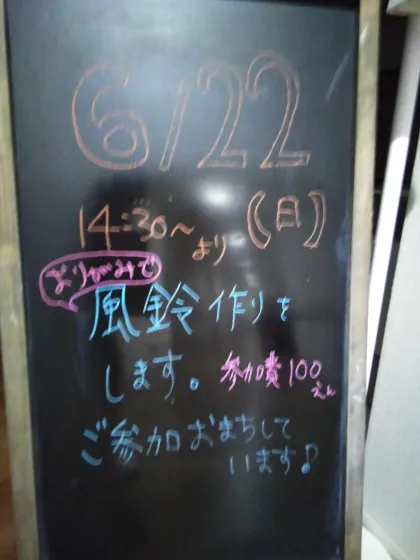 6/22
14:30~より(日)
おりがみで
風鈴作りを
します。参加費100えん
ご参加おまちして
います♪